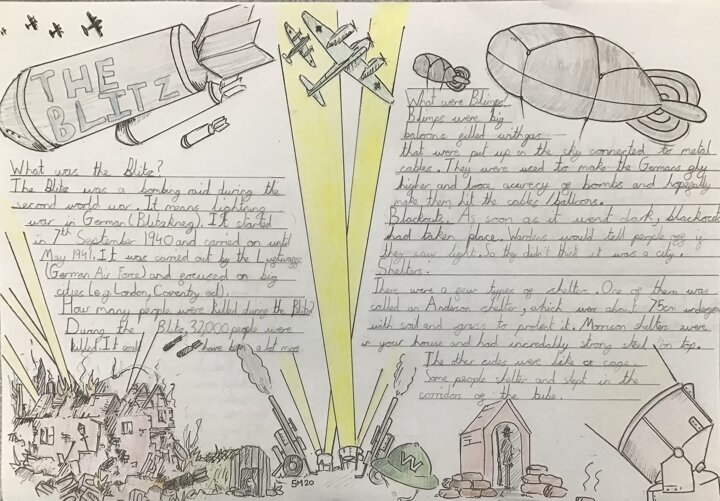 THE
BLITZ
What was the Blitz?
The Blitz was a bombing raid during the
second world war. It means lightning
war in German (Blitzkrieg). It started
in 7th September 1940 and carried on until
May 1941. It was carried out by the
(German Air Force) and focused on big
cities (e.g London, Coventry ect).
How many people were killed during the Blitz?
During the Blitz 32,000 people were
killed. It could have been a lot more
What were Blimps
Blimps were big
baloons filled with gas
that were put up in the sky connected to metal
cables. They were used to make the Germans fly
higher and loose acurecy of bombs and hopefully
make them hit the cables/balloons.
Blackouts. As soon as it went dark, blackouts
had taken place. Wardens would tell people off if
they saw light. So they didn't think it was a city.
Shelters.
There were a few types of shelter. One of them was
called an Anderson shelter, which were about 75cm
with soil and grass to protect it. Morrison shelters were
in your house and had incredably strong steel on top.
The other sides were like a cage.
Some people shelter and slept in the
corridor of the tube.
W
SM20